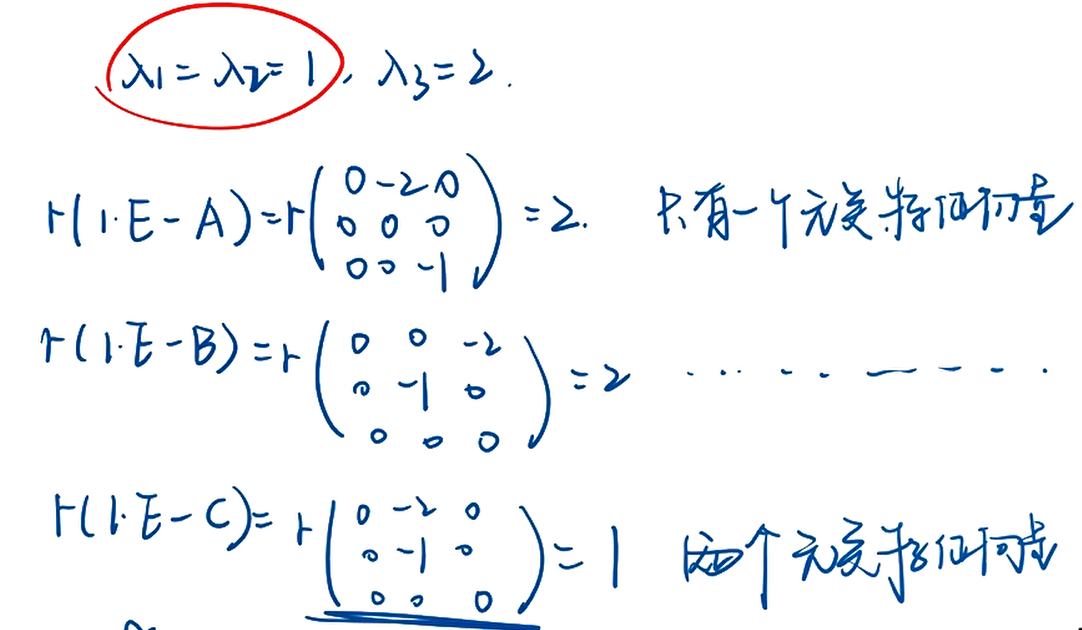 λ1 = λ2 = 1, λ3 = 2.
r(1·E-A) = r(0 -2 0
0 0 0
0 0 -1) = 2. 只有一个无关特征向量
r(1·E-B) = r(0 0 -2
0 -1 0
0 0 0) = 2 ...... — - - - .
r(1·E-C) = r(0 -2 0
0 -1 0
0 0 0) = 1 两个无关特征向量